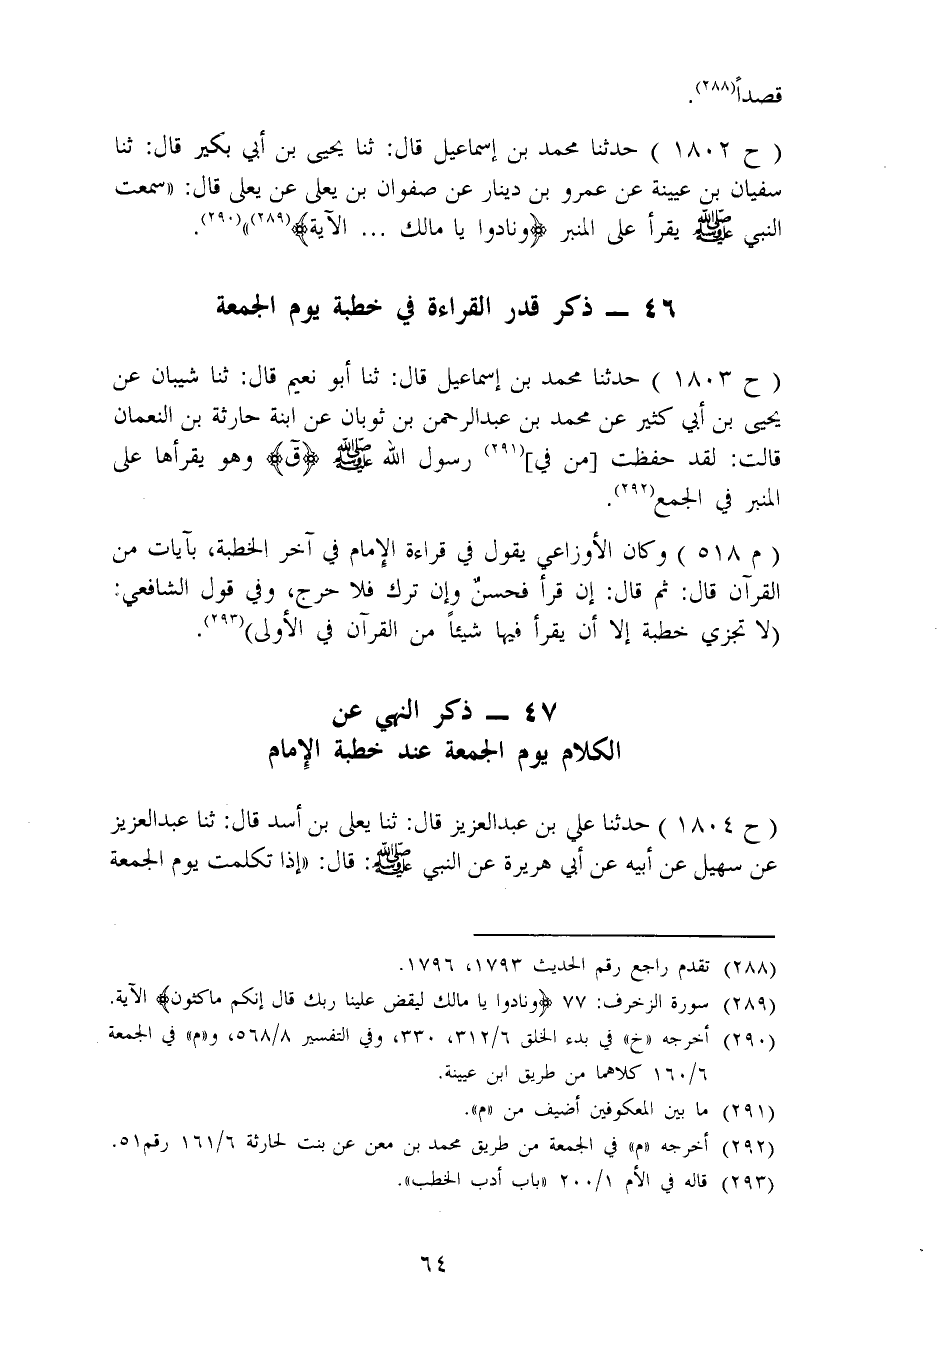 قصداً(٢٨٨).
( ح ١٨٠٢ ) حدثنا محمد بن إسماعيل قال: ثنا يحيى بن أبي بكير قال: ثنا
سفيان بن عيينة عن عمرو بن دينار عن صفوان بن يعلى عن يعلى قال: «سمعت
النبي ﷺ يقرأ على المنبر ﴿ونادوا يا مالك ... الآية﴾(٢٨٩)»(٢٩٠).
٤٦ ــ ذكر قدر القراءة في خطبة يوم الجمعة
( ح ١٨٠٣ ) حدثنا محمد بن إسماعيل قال: ثنا أبو نعيم قال: ثنا شيبان عن
يحيى بن أبي كثير عن محمد بن عبدالرحمن بن ثوبان عن ابنة حارثة بن النعمان
قالت: لقد حفظت [من في](٢٩١) رسول الله ﷺ ﴿قۤ﴾ وهو يقرأها على
المنبر في الجمع(٢٩٢).
( م ٥١٨ ) وكان الأوزاعي يقول في قراءة الإمام في آخر الخطبة، بآيات من
القرآن قال: ثم قال: إن قرأ فحسنٌ وإن ترك فلا حرج، وفي قول الشافعي:
(لا تجزي خطبة إلا أن يقرأ فيها شيئاً من القرآن في الأولى)(٢٩٣).
٤٧ ــ ذكر النهي عن
الكلام يوم الجمعة عند خطبة الإمام
( ح ١٨٠٤ ) حدثنا علي بن عبدالعزيز قال: ثنا يعلى بن أسد قال: ثنا عبدالعزيز
عن سهيل عن أبيه عن أبي هريرة عن النبي ﷺ: قال: «إذا تكلمت يوم الجمعة
(٢٨٨) تقدم راجع رقم الحديث ١٧٩٣، ١٧٩٦.
(٢٨٩) سورة الزخرف: ٧٧ ﴿ونادوا يا مالك ليقض علينا ربك قال إنكم ماكثون﴾ الآية.
(٢٩٠) أخرجه «خ» في بدء الخلق ٣١٢/٦، ٣٣٠، وفي التفسير ٥٦٨/٨، و«م» في الجمعة
١٦٠/٦ كلاهما من طريق ابن عيينة.
(٢٩١) ما بين المعكوفين أضيف من «م».
(٢٩٢) أخرجه «م» في الجمعة من طريق محمد بن معن عن بنت لحارثة ١٦١/٦ رقم٥١.
(٢٩٣) قاله في الأم ٢٠٠/١ «باب أدب الخطب».
٦٤